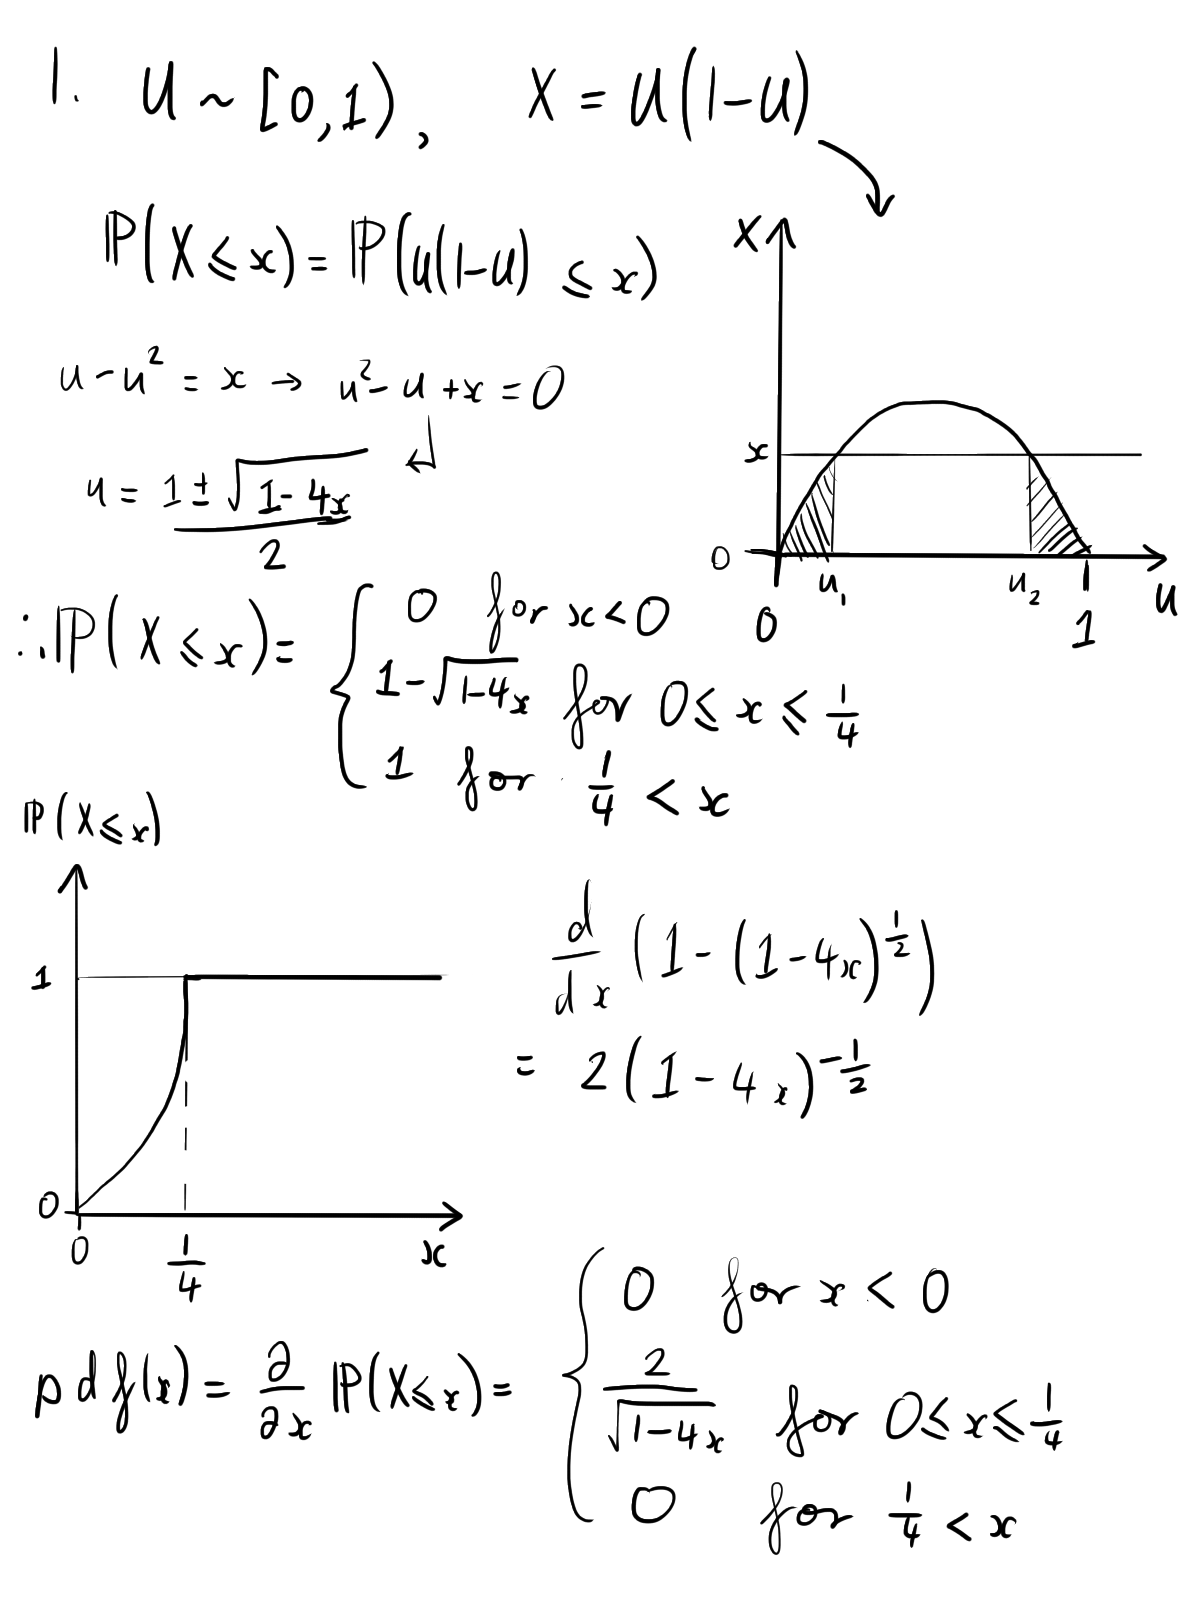 1. U ~ [0,1), X = U(1-U)
ℙ(X ⩽ x) = ℙ(U(1-U) ⩽ x)
X
u - u² = x → u² - u + x = 0
x
u = (1 ± √(1-4x))/2
0
u₁ u₂ 1 U
0 1
∴ ℙ(X ⩽ x) = { 0 for x < 0
1-√(1-4x) for 0 ⩽ x ⩽ 1/4
1 for 1/4 < x
ℙ(X ⩽ x)
d/dx (1 - (1-4x)^(1/2))
1
= 2(1-4x)^(-1/2)
0
0 1/4 x
pdf(x) = ∂/∂x ℙ(X ⩽ x) = { 0 for x < 0
2/√(1-4x) for 0 ⩽ x ⩽ 1/4
0 for 1/4 < x